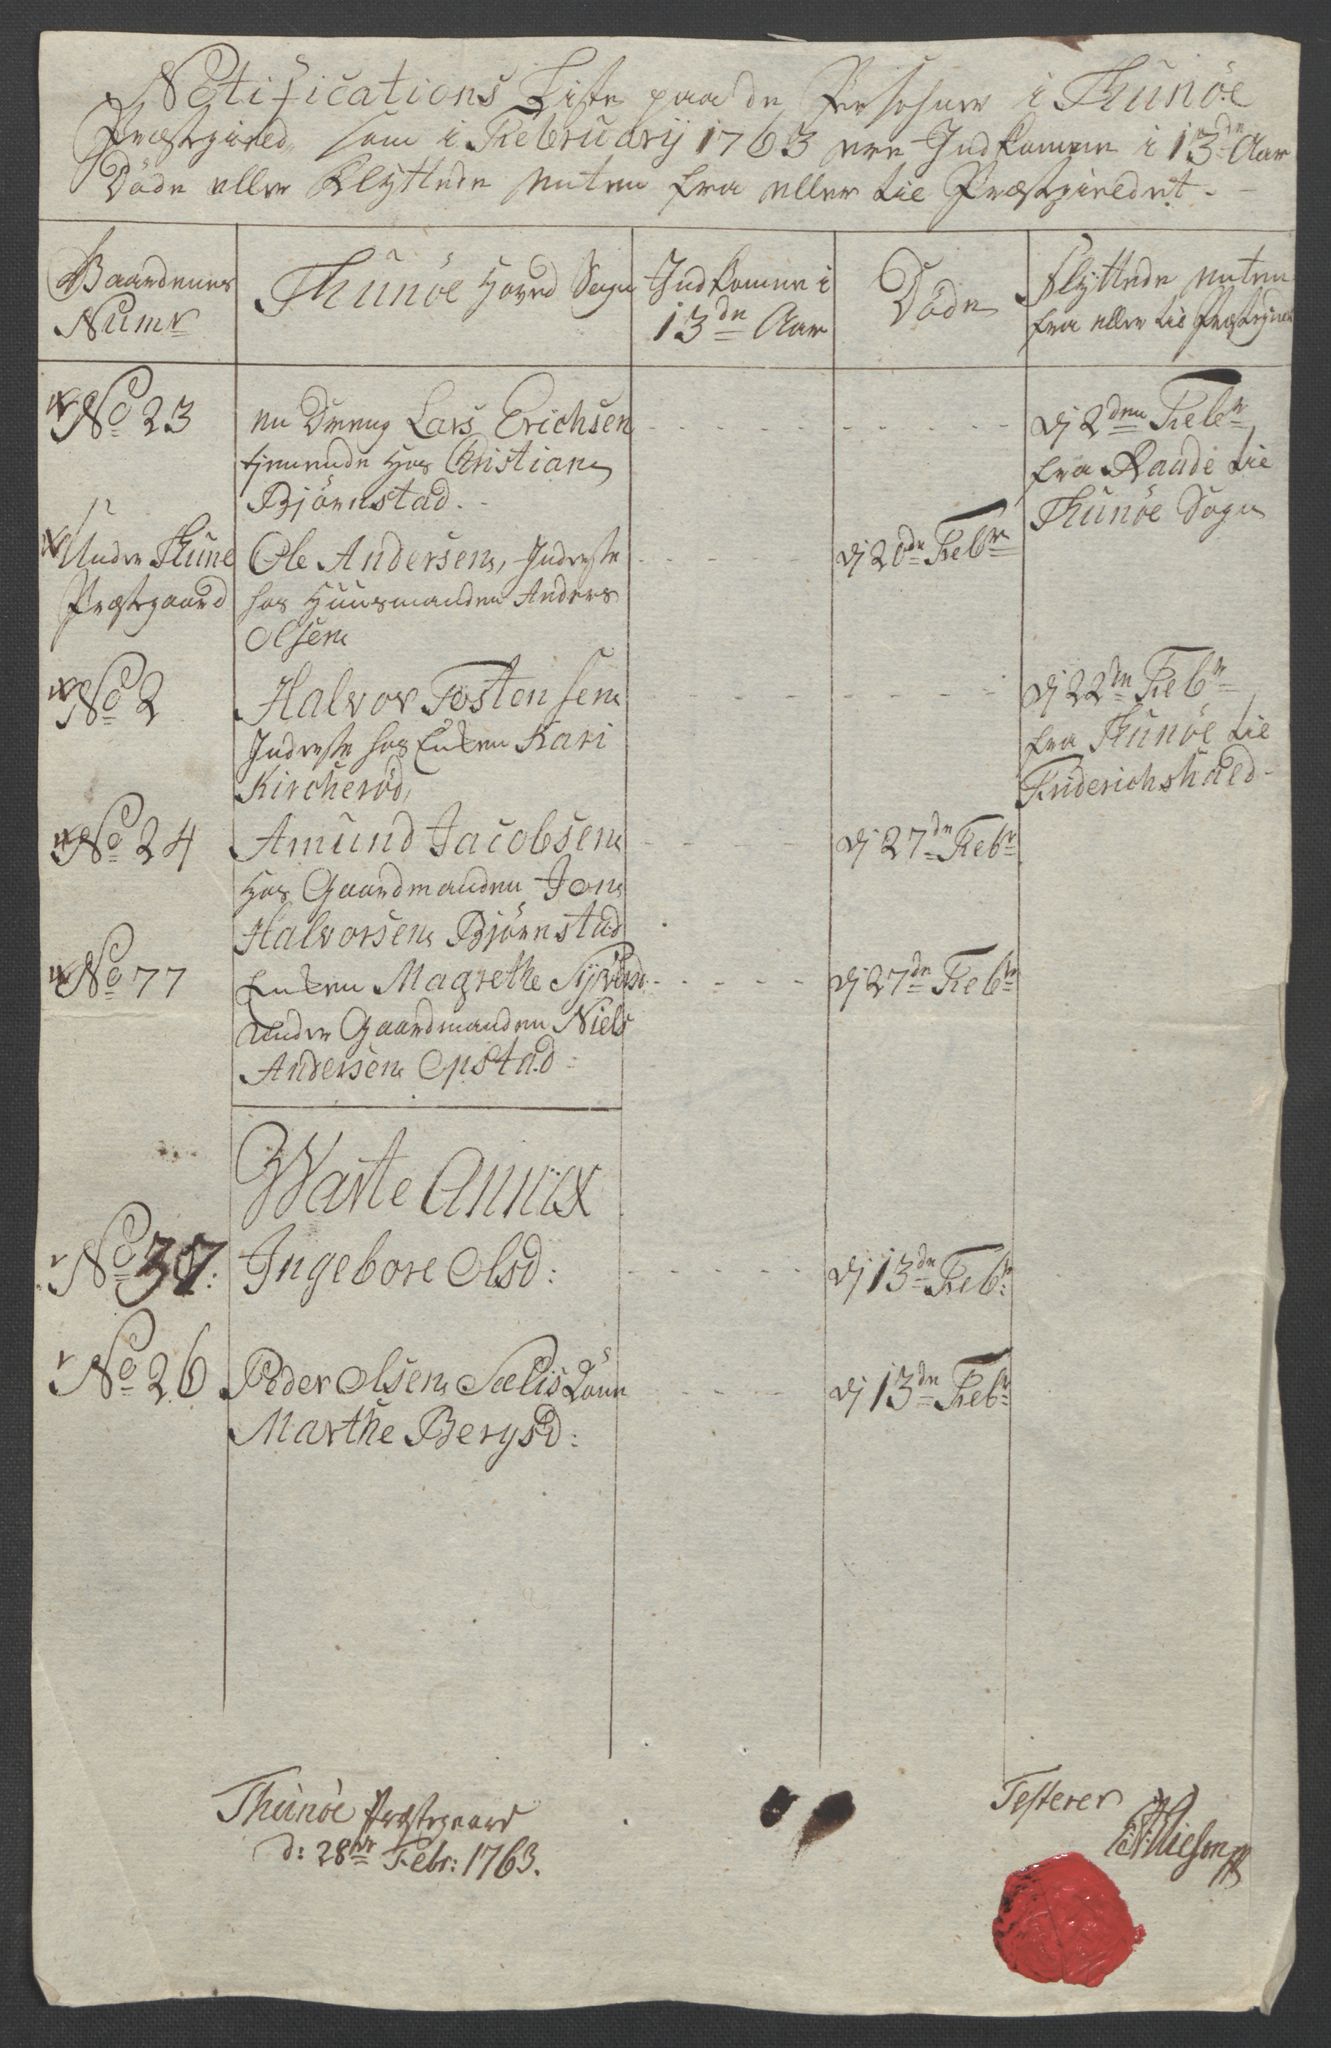 Notifications Liste paa de Persohner i Thunøe
Præstegield, som i Februarij 1763 ere Indkomne i 13de Aar
Døde eller Flyttede enten fra eller til Præstegieldet.
Gaardenes
Numr
Thunøe Hoved Sogn
Indkomne i
13de Aar
Døde
Flyttede enten
fra eller til Præstegield
No 23
en Dreng Lars Erichsen
tienende hos Christian
Bjørnstad.
dj 2den Febr
fra Raade til
Thunøe Sogn
Under Thune
Præstegaard
Ole Andersen, Inderste
hos Huusmanden Anders
Olsen
dj 20de Febr
No 2
Halvor Tostensen
Inderste hos Enken Kari
Kircherød,
dj 22den Febr
fra Thunøe til
Friderichshald
No 24
Amund Jacobsen
hos Gaardmanden Jon
Halvorsen Bjørnstad
dj 27de Febr
No 77
Enken Magrethe Syversd
under Gaardmanden Niels
Andersen Opstad:
dj 27de Febr
Warte Annex
No 37:
Ingebore Olsd:
dj 13de Febr
No 26
Peder Olsen Sælis Kone
Marthe Bergsd:
dj 13de Febr
Thunøe Præstegaard
d: 28de Febr: 1763.
Testerer